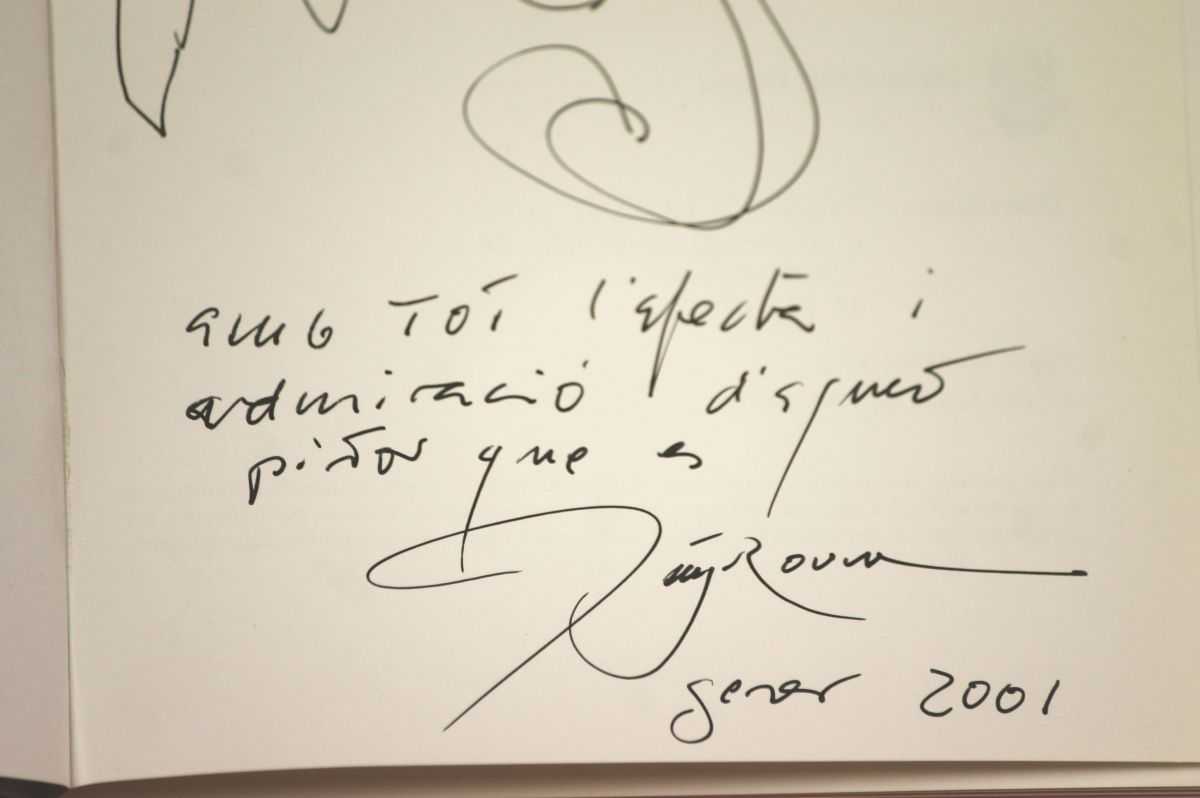 amb tot l'afecte i
admiració d'aquest
pintor que es
gener 2001